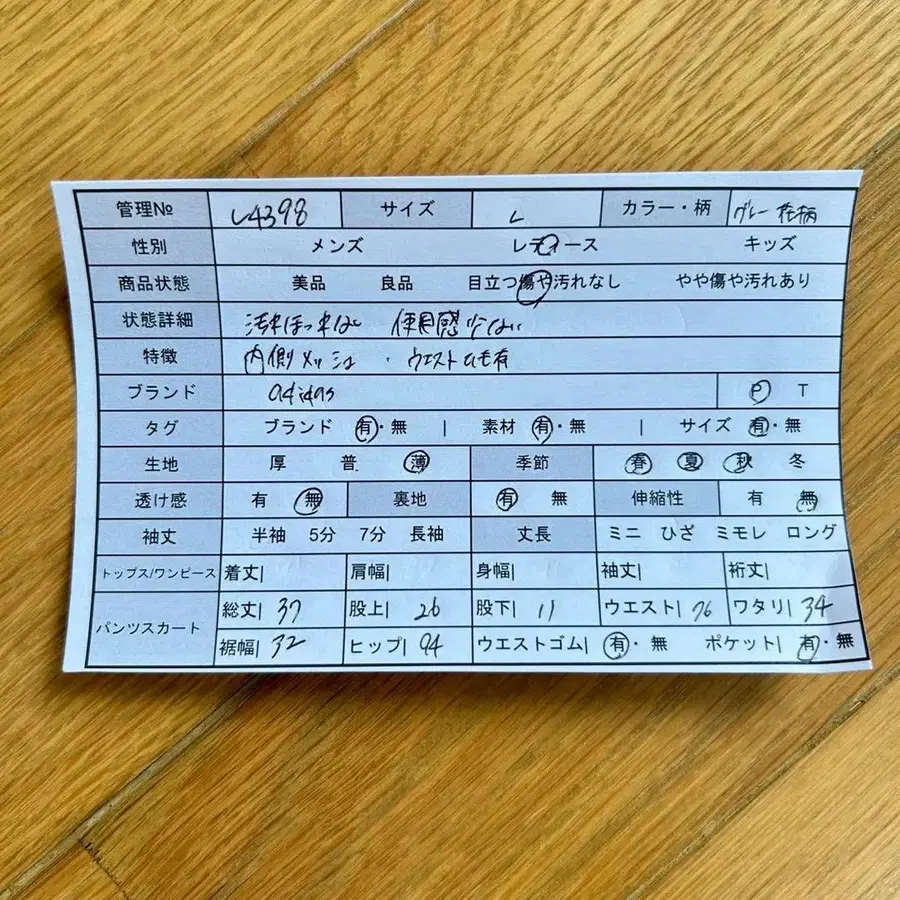 管理№ L4398 サイズ L カラー・柄 グレー 花柄
性別 メンズ レディース キッズ
商品状態 美品 良品 目立つ傷や汚れなし やや傷や汚れあり
状態詳細 汚れほつれなし 使用感少ない
特徴 内側メッシュ ・ ウエストひも有
ブランド adidas P T
タグ ブランド 有・無 | 素材 有・無 | サイズ 有・無
生地 厚 普 薄 季節 春 夏 秋 冬
透け感 有 無 裏地 有 無 伸縮性 有 無
袖丈 半袖 5分 7分 長袖 丈長 ミニ ひざ ミモレ ロング
トップス/ワンピース 着丈| 肩幅| 身幅| 袖丈| 裄丈|
パンツスカート 総丈| 37 股上| 26 股下| 11 ウエスト| 76 ワタリ| 34
裾幅| 32 ヒップ| 94 ウエストゴム| 有・無 ポケット| 有・無